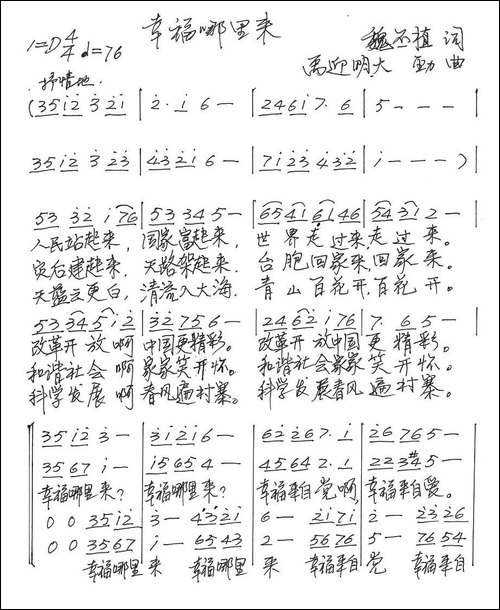 幸福哪里来
1=D 4/4 ♩=76
魏丕植 词
禹迎明 大 劲 曲
抒情地
(35i2 3 2i | 2· i 6 — | 246i 7· 6 | 5 — — —
35i2 3 23 | 4321 6 — | 7i23 432 | i — — — )
53 32 i 76 | 53 34 5 — | 6541 6146 | 5431 2 —
人民站起来, 国家富起来, 世界走过来走过来。
灾后建起来, 天路架起来. 台胞回家来,回家来。
天蓝云更白, 清流入大海. 青山百花开,百花开。
53 34 5 i 2 | 32 75 6 — | 2462 i 76 | 7. 6 5 —
改革开放啊 中国更精彩。 改革开放中国更精彩。
和谐社会啊 家家笑开怀。 和谐社会家家笑开怀。
科学发展啊 春风遍村寨。 科学发展春风遍村寨。
35 i2 3 — | 3i2i 6 — | 62 26 7. i | 26 76 5 —
35 67 i — | i5 65 4 — | 4564 2. 1 | 223#4 5 —
幸福哪里来? 幸福哪里来? 幸福来自党啊, 幸福来自党。
0 0 35 i2 | 3 — 432i | 6 — 2i7i | 2 — 2326
0 0 3567 | i — 6543 | 2 — 5676 | 5 — 7654
幸福哪里 来 幸福哪里 来 幸福来自 党 幸福来自